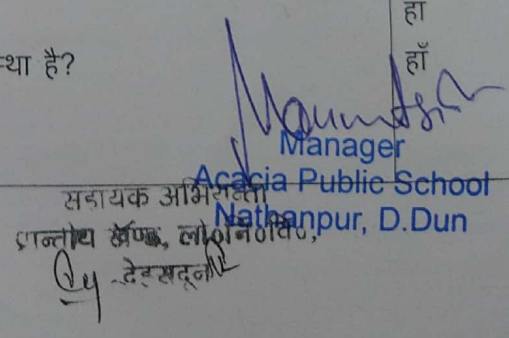 हाँ
था है?
हाँ
Manager
Acacia Public School
Nathanpur, D.Dun
सहायक अभियन्ता
प्रान्तीय खण्ड, लो०नि०वि०,
देहरादून